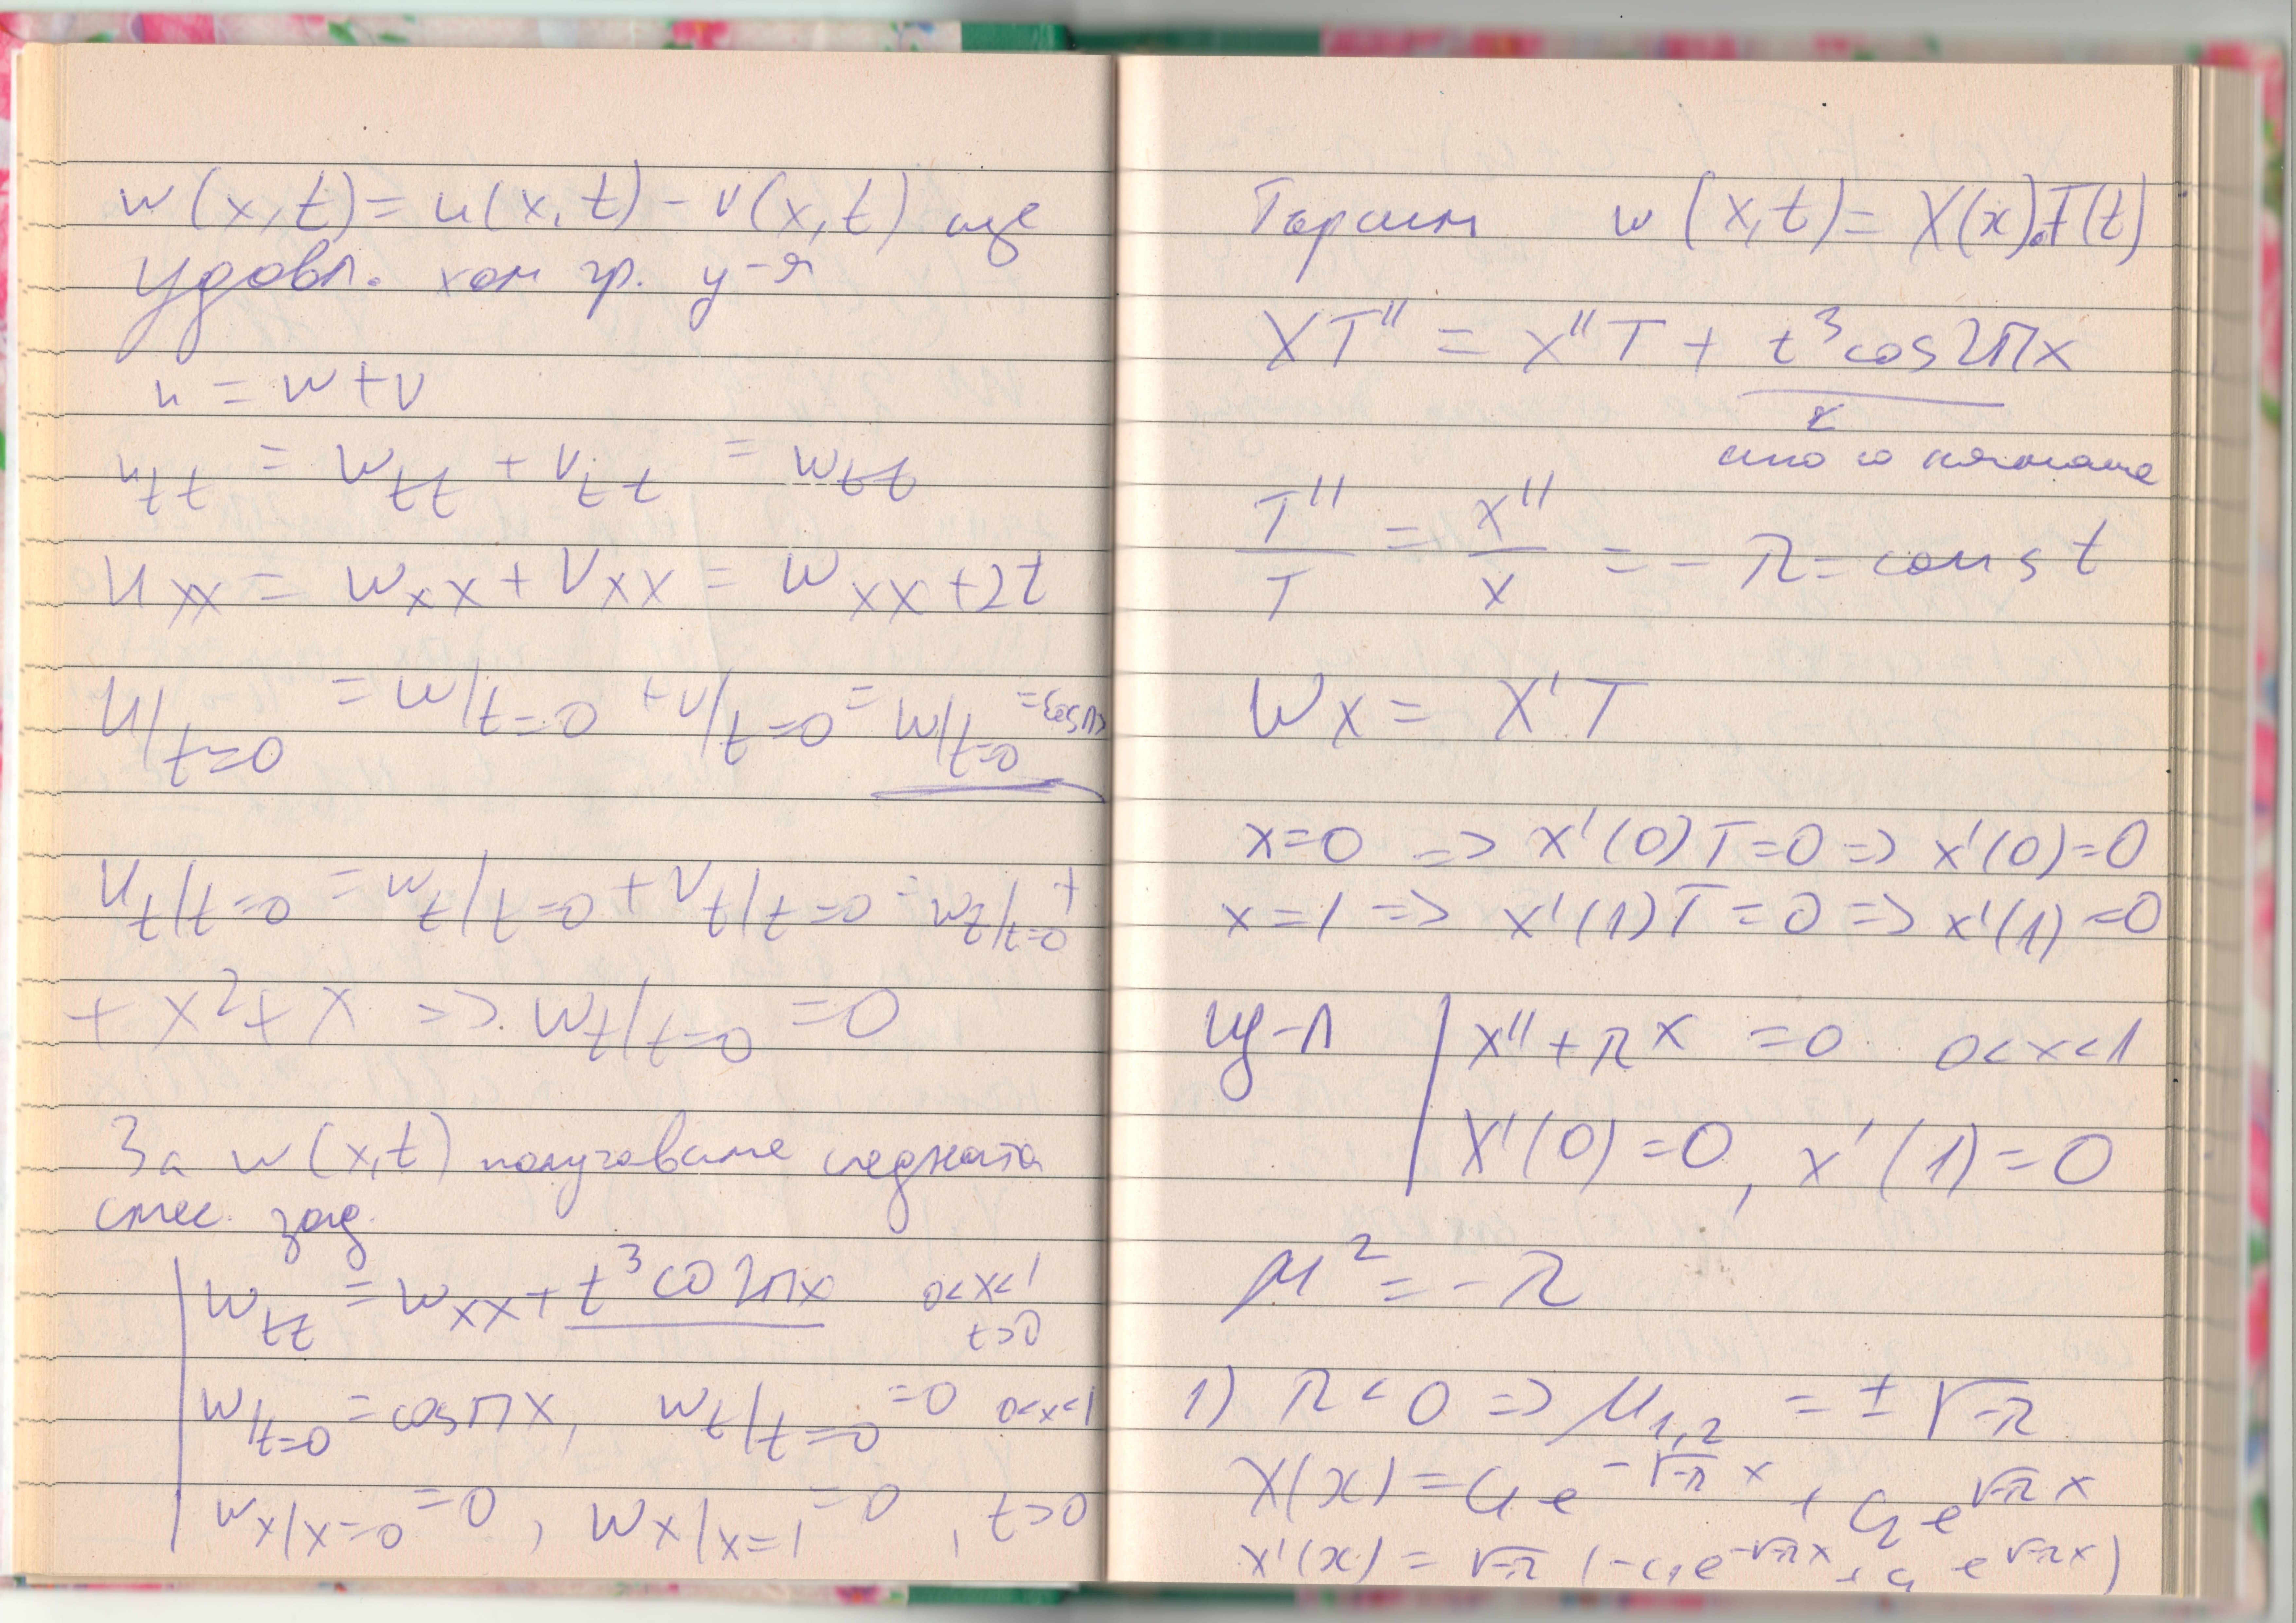 w(x,t) = u(x,t) - v(x,t) ще
удовл. хом гр. у-я
u = w+v
u_tt = w_tt + v_tt = w_tt
u_xx = w_xx + v_xx = w_xx + 2t
u/t=0 = w/t=0 + v/t=0 = w/t=0 = cosπx
u_t/t=0 = w_t/t=0 + v_t/t=0 = w_t/t=0 +
+ x² + x => w_t/t=0 = 0
За w(x,t) получаваме следната
смес. зад.
w_tt = w_xx + t³cos2πx 0<x<1
t>0
w/t=0 = cosπx, w_t/t=0 = 0 0<x<1
w_x/x=0 = 0, w_x/x=1 = 0, t>0
Търсим w(x,t) = X(x).T(t)
XT'' = X''T + t³cos2πx
ако го нямаше
T''/T = X''/X = -λ = const
w_x = X'T
x=0 => X'(0)T=0 => X'(0)=0
x=1 => X'(1)T=0 => X'(1)=0
Щ-Л X''+λX = 0 0<x<1
X'(0)=0, X'(1)=0
μ² = -λ
1) λ<0 => μ1,2 = ± √-λ
X(x) = C₁e^(-√-λ x) + C₂e^(√-λ x)
X'(x) = √-λ (-C₁e^(-√-λ x) + C₂e^(√-λ x))